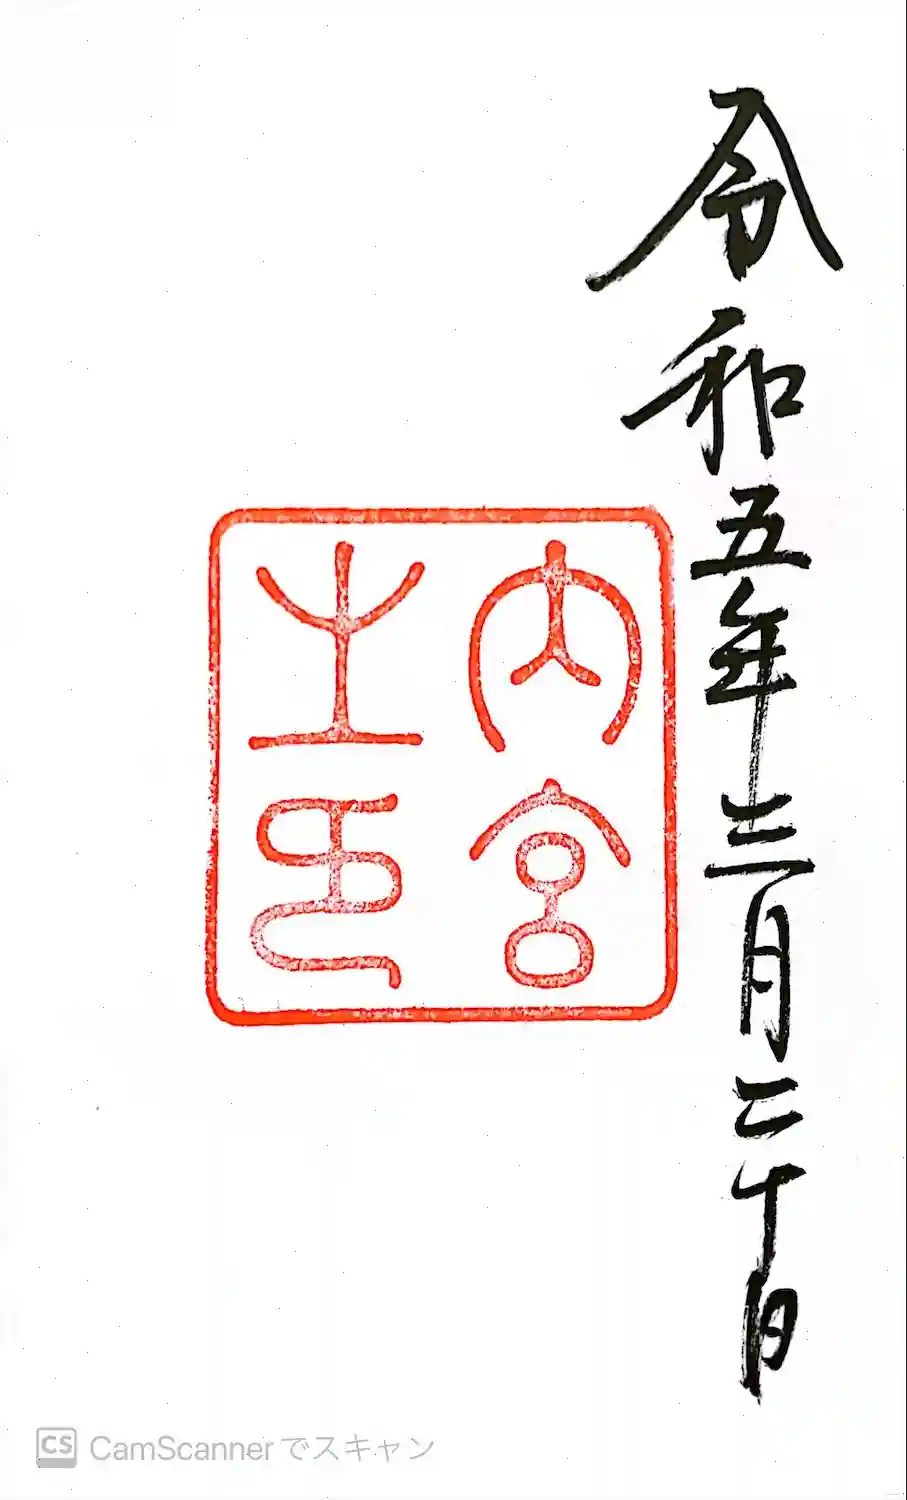 令和五年三月二十日
内宮
之印
CS CamScannerでスキャン